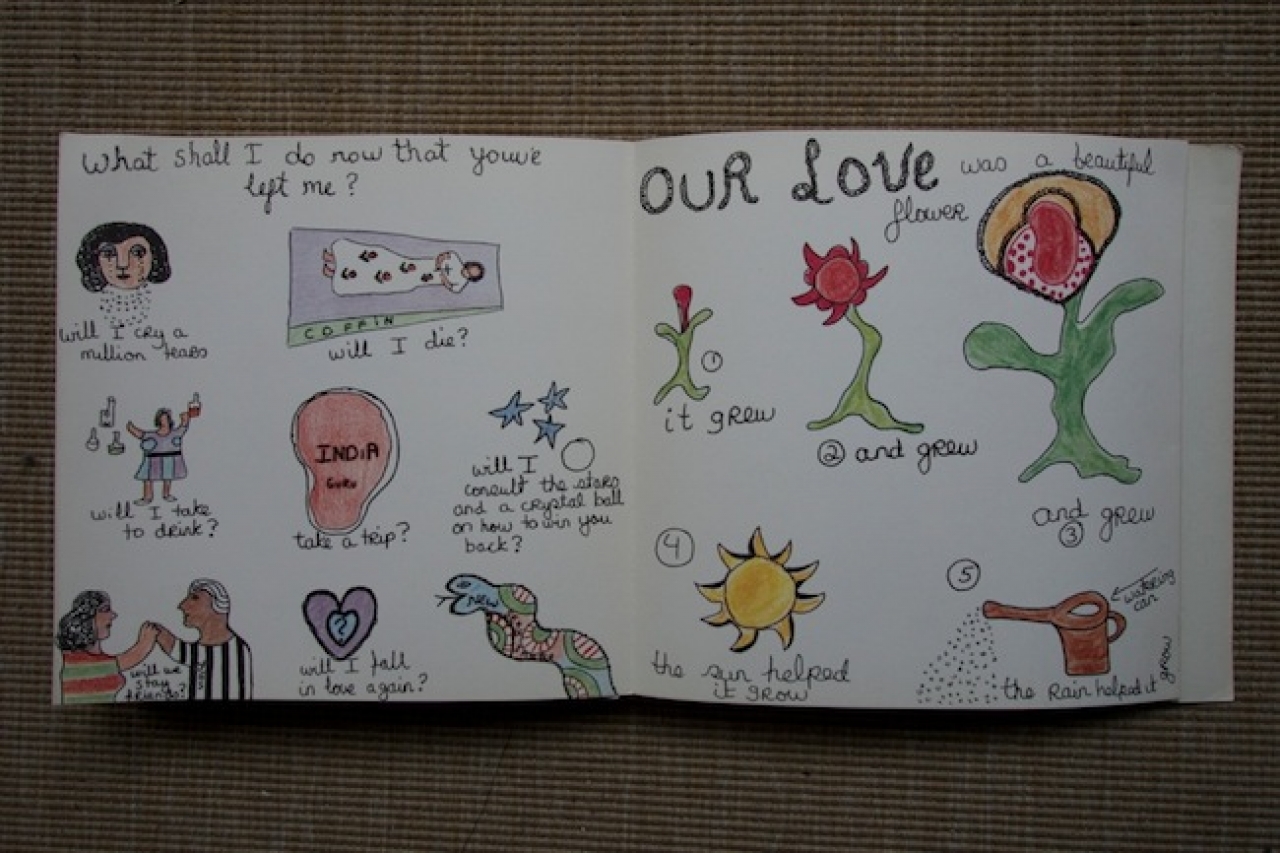 What shall I do now that youve
left me?
will I cry a
million tears
COFFIN
will I die?
will I take
to drink?
INDIA
GURU
take a trip?
will I
consult the stars
and a crystal ball
on how to win you
back?
will we
stay
friends?
?
will I fall
in love again?
new
OUR LOVE was a beautiful
flower
1
it grew
2 and grew
and grew
3
4
the sun helped
it grow
5
watering
can
the Rain helped it
grow